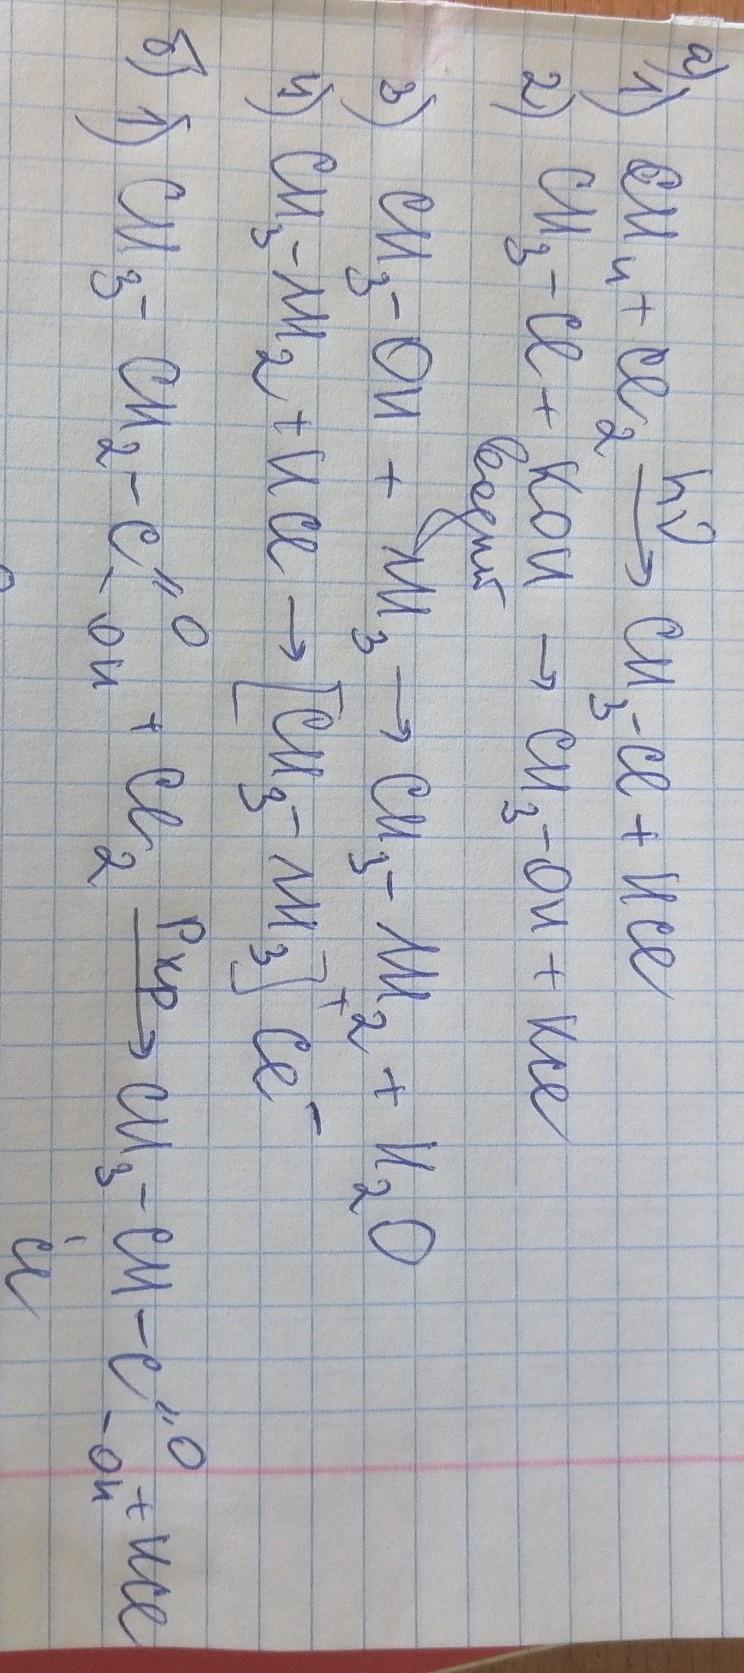 а)
1) CH₄ + Cl₂ —hν→ CH₃-Cl + HCl
2) CH₃-Cl + KOH → CH₃-OH + KCl
водный
3) CH₃-OH + NH₃ → CH₃-NH₂ + H₂O
4) CH₃-NH₂ + HCl → [CH₃-NH₃]⁺ Cl⁻
б) 1) CH₃-CH₂-C(=O)-OH + Cl₂ —Pкр→ CH₃-CH-C(=O)-OH + HCl
Cl